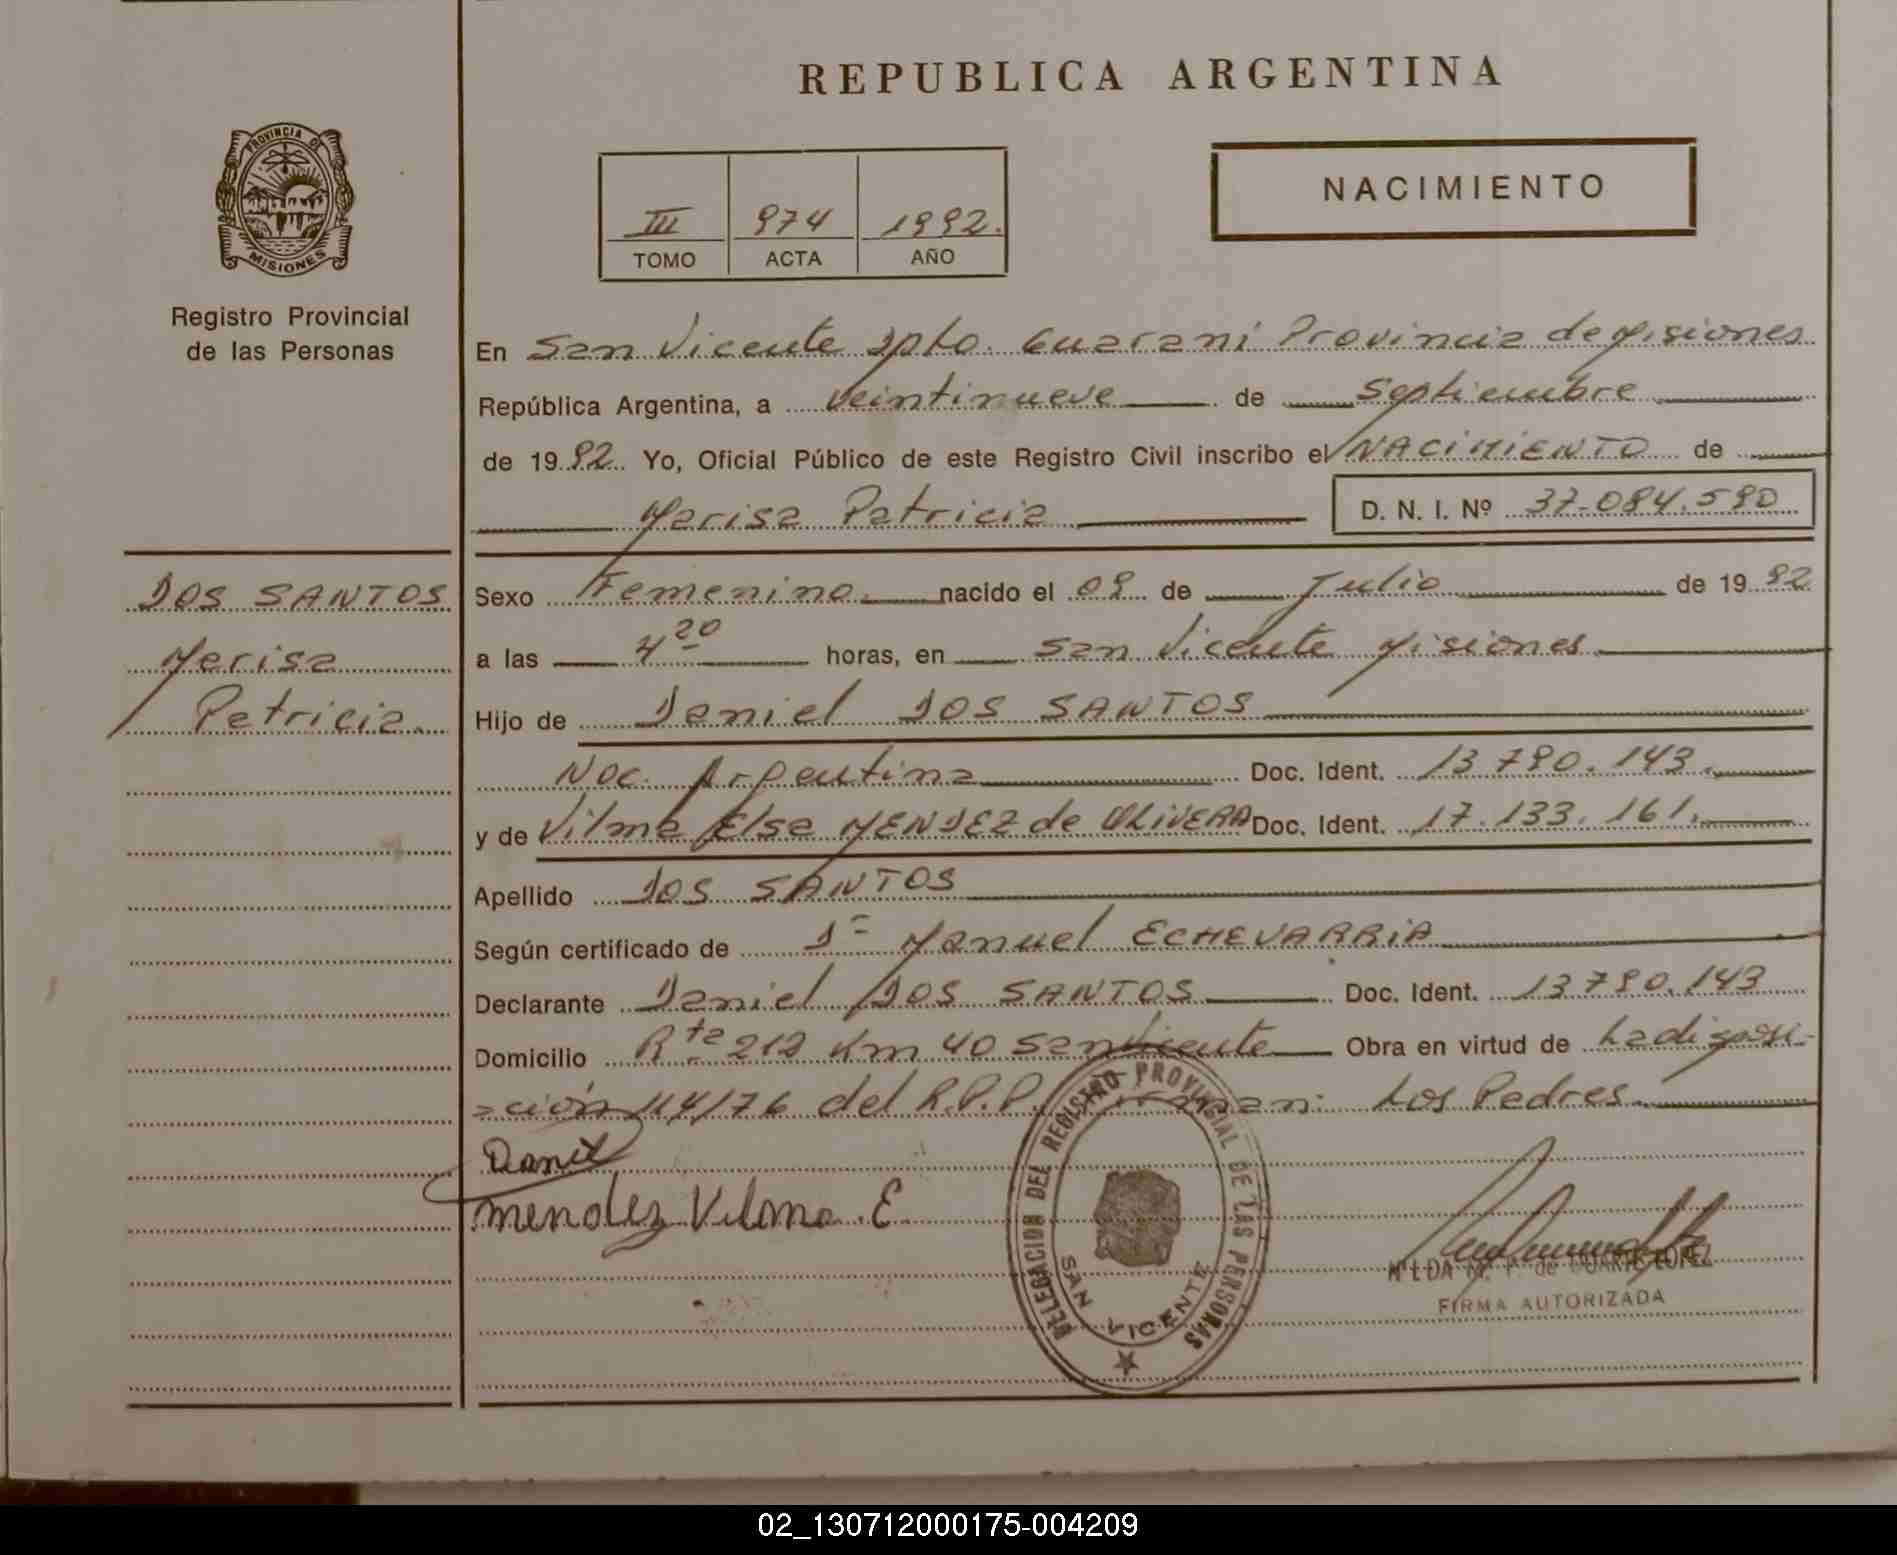 REPUBLICA ARGENTINA
PROVINCIA DE
MISIONES
Registro Provincial
de las Personas
NACIMIENTO
III 974 1992.
TOMO ACTA AÑO
En San Vicente Dpto. Guaraní Provincia de Misiones
República Argentina, a veintinueve de Septiembre
de 19 92 Yo, Oficial Público de este Registro Civil inscribo el NACIMIENTO de
Marisa Patricia D. N. I. Nº 37-084.590
DOS SANTOS
Marisa
Patricia.
Sexo Femenino. nacido el 09 de Julio de 19 92
a las 4 20 horas, en San Vicente Misiones
Hijo de Daniel DOS SANTOS
Nac. Argentina Doc. Ident. 13.790.143.
y de Vilma Elsa MENDEZ de OLIVERA Doc. Ident. 17.133.161.
Apellido DOS SANTOS
Según certificado de Dr Manuel ECHEVARRIA
Declarante Daniel DOS SANTOS Doc. Ident. 13790.143
Domicilio Rta 212 Km 40 San Vicente Obra en virtud de La disposi-
ción 114/76 del R.P.P. Los Padres.
Daniel
Mendez Vilma. E
DELEGACION DEL REGISTRO PROVINCIAL DE LAS PERSONAS
SAN VICENTE
FIRMA AUTORIZADA
02_130712000175-004209